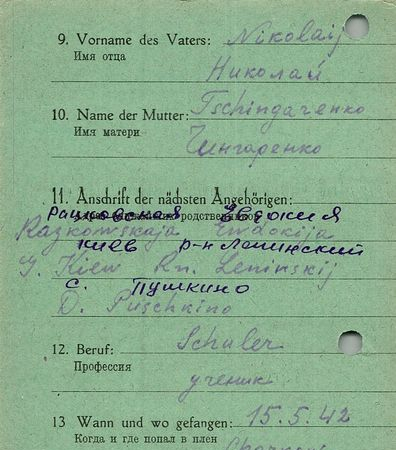 9. Vorname des Vaters: Nikolaij
Имя отца
Николай
10. Name der Mutter: Tschingarenko
Имя матери
Чингаренко
11. Anschrift der nächsten Angehörigen:
родственников
Евдокия
Razkowskaja Ewdokija
Киев р-н Ленинский
g. Kiew Rn. Leninskij
с. Пушкино
D. Puschkino
12. Beruf: Schüler
Профессия
ученик
13 Wann und wo gefangen: 15.5.42
Когда и где попал в плен